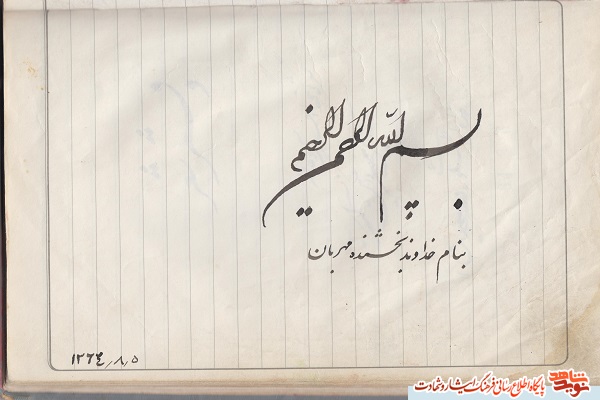 بسم الله الرحمن الرحیم
بنام خداوند بخشنده مهربان
۱۳۶۴/۸/۵
نوید شاهد
پایگاه اطلاع رسانی فرهنگ ایثار و شهادت